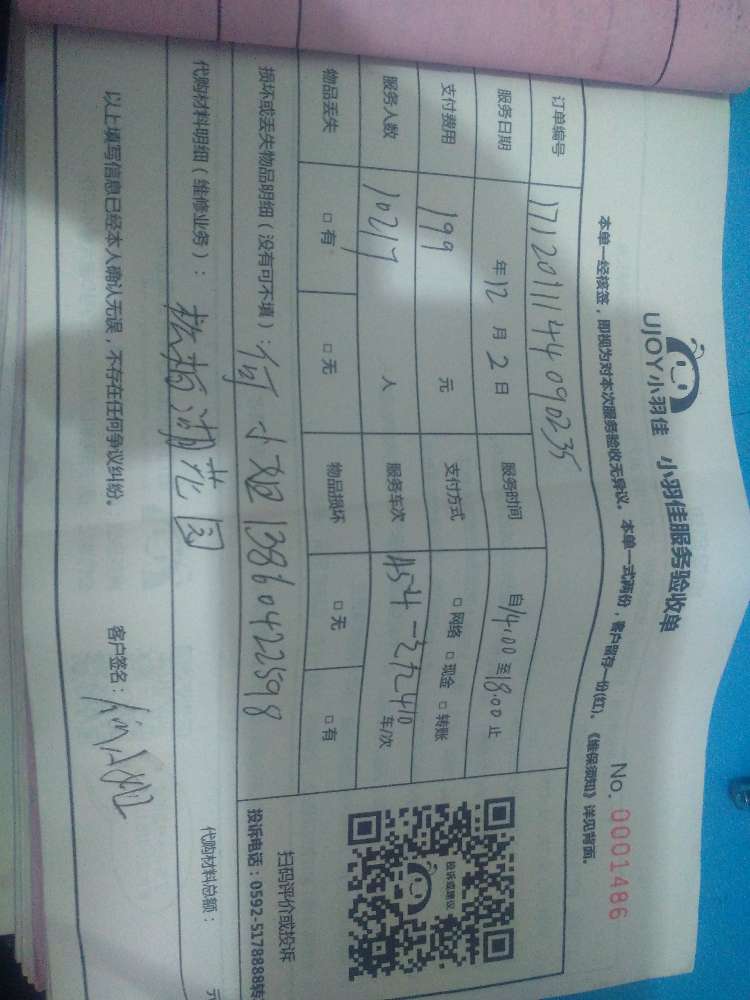 UJOY小羽佳 小羽佳服务验收单
No. 0001486
本单一经核签，即视为对本次服务验收无异议。本单一式两份，客户留存一份(红)。《维保须知》详见背面。
订单编号 1712011144090235
服务日期 年12月2日 服务时间 自14:00至18:00止
支付费用 199 元 支付方式 □网络 □现金 □转账
服务人数 10217 人 服务车次 车/次
物品丢失 □有 □无 物品损坏 □无 □有
损坏或丢失物品明细（没有可不填）：何小姐 13860422598
代购材料明细（维修业务）：松柏湖花园 代购材料总额： 元
以上填写信息已经本人确认无误，不存在任何争议纠纷。 客户签名：
投诉或建议
扫码评价或投诉
投诉电话：0592-5178888转